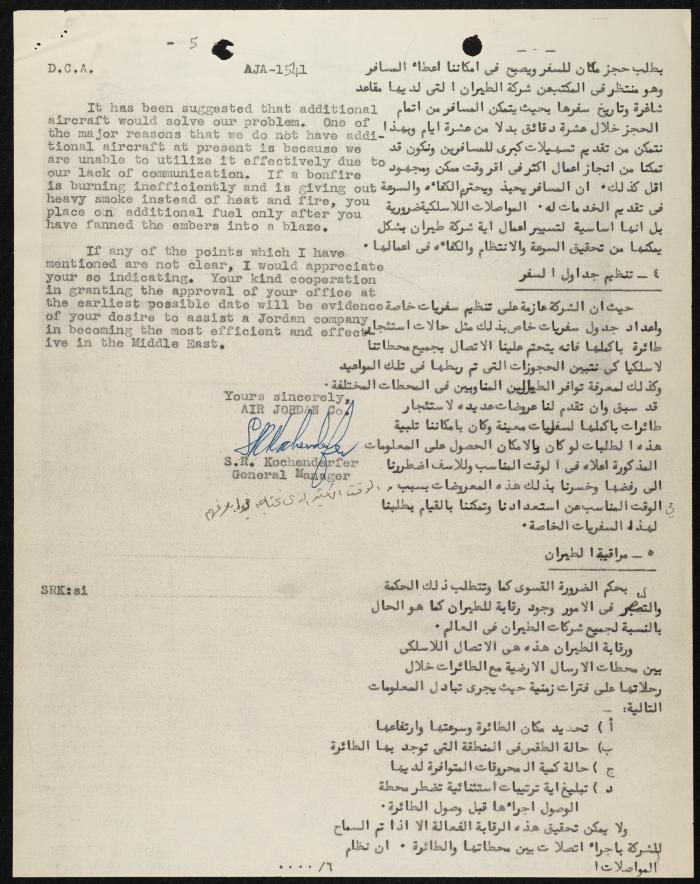 - 5 -
D.C.A.
AJA-1541
It has been suggested that additional
aircraft would solve our problem. One of
the major reasons that we do not have addi-
tional aircraft at present is because we
are unable to utilize it effectively due to
our lack of communication. If a bonfire
is burning inefficiently and is giving out
heavy smoke instead of heat and fire, you
place on additional fuel only after you
have fanned the embers into a blaze.
If any of the points which I have
mentioned are not clear, I would appreciate
your so indicating. Your kind cooperation
in granting the approval of your office at
the earliest possible date will be evidence
of your desire to assist a Jordan company
in becoming the most efficient and effect-
ive in the Middle East.
Yours sincerely,
AIR JORDAN Co.
S.R. Kochenderfer
General Manager
SRK:si
بطلب حجز مكان للسفر ويصبح في امكاننا اعطاء المسافر
وهو منتظر في المكتب عن شركة الطيران التي لديها مقاعد
شاغرة وتاريخ سفرها بحيث يتمكن المسافر من اتمام
الحجز خلال عشرة دقائق بدلا من عشرة ايام وبهذا
نتمكن من تقديم تسهيلات كبرى للمسافرين ونكون قد
تمكنا من انجاز اعمال اكثر في اقر وقت ممكن ومجهود
اقل كذلك . ان المسافر يحبذ ويحترم الكفاءه والسرعة
في تقديم الخدمات له . المواصلات اللاسلكية ضرورية
بل انها اساسية لتسيير اعمال اية شركة طيران بشكل
يمكنها من تحقيق السرعة والانتظام والكفاءه في اعمالها .
٤ – تنظيم جداول السفر
حيث ان الشركة عازمة على تنظيم سفريات خاصة
واعداد جدول سفريات خاص بذلك مثل حالات استئجار
طائرة باكملها فانه يتحتم علينا الاتصال بجميع محطاتنا
لاسلكيا كي نتبين الحجوزات التي تم ربطها في تلك المواعيد
وكذلك لمعرفة توافر الطيارين المناوبين في المحطات المختلفة .
قد سبق وان تقدم لنا عروضات عديده لاستئجار
طائرات باكملها لسفريات معينة وكان بامكاننا تلبية
هذه الطلبات لو كان بالامكان الحصول على المعلومات
المذكورة اعلاه في الوقت المناسب وللاسف اضطررنا
الى رفضها وخسرنا بذلك هذه المعروضات بسبب
الوقت
في الوقت المناسب عن استعدادنا وتمكننا بالقيام بطلبنا
لهذه السفريات الخاصة .
٥ – مراقبة الطيران
بحكم الضرورة القسوى كما وتتطلب ذلك الحكمة
والتبصر في الامور وجود رقابة للطيران كما هو الحال
بالنسبة لجميع شركات الطيران في العالم .
ورقابة الطيران هذه هي الاتصال اللاسلكي
بين محطات الارسال الارضية مع الطائرات خلال
رحلاتها على فترات زمنية حيث يجرى تبادل المعلومات
التالية: –
أ ) تحديد مكان الطائرة وسرعتها وارتفاعها
ب) حالة الطقس في المنطقة التي توجد بها الطائرة
ج ) حالة كمية المحروقات المتوافرة لديها
د ) تبليغ اية ترتيبات استثنائية تضطر محطة
الوصول اجراءها قبل وصول الطائرة .
ولا يمكن تحقيق هذه الرقابة الفعالة الا اذا تم السماح
للشركة باجراء اتصالات بين محطاتها والطائرة . ان نظام
المواصلات ا
٦/ ....